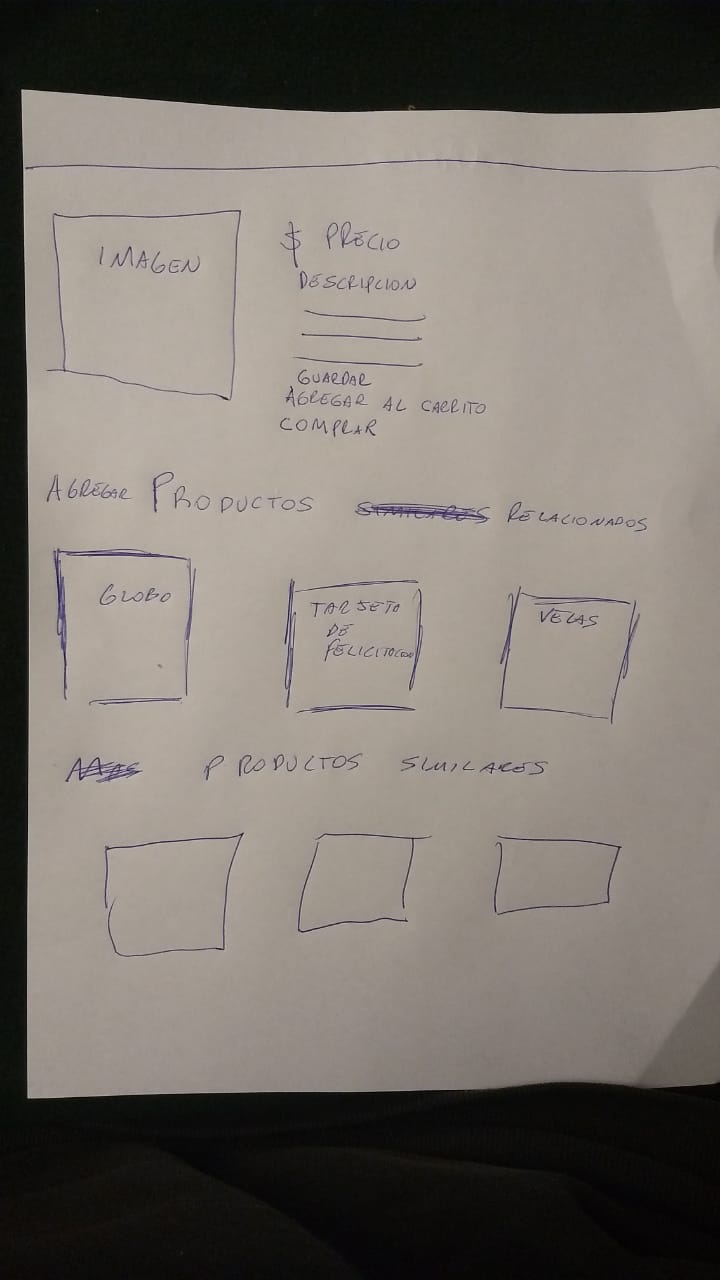 IMAGEN
$ PRECIO
DESCRIPCION
GUARDAR
AGREGAR AL CARRITO
COMPRAR
AGREGAR PRODUCTOS SIMILARES RELACIONADOS
GLOBO
TARJETA
DE
FELICITACION
VELAS
MAS PRODUCTOS SIMILARES